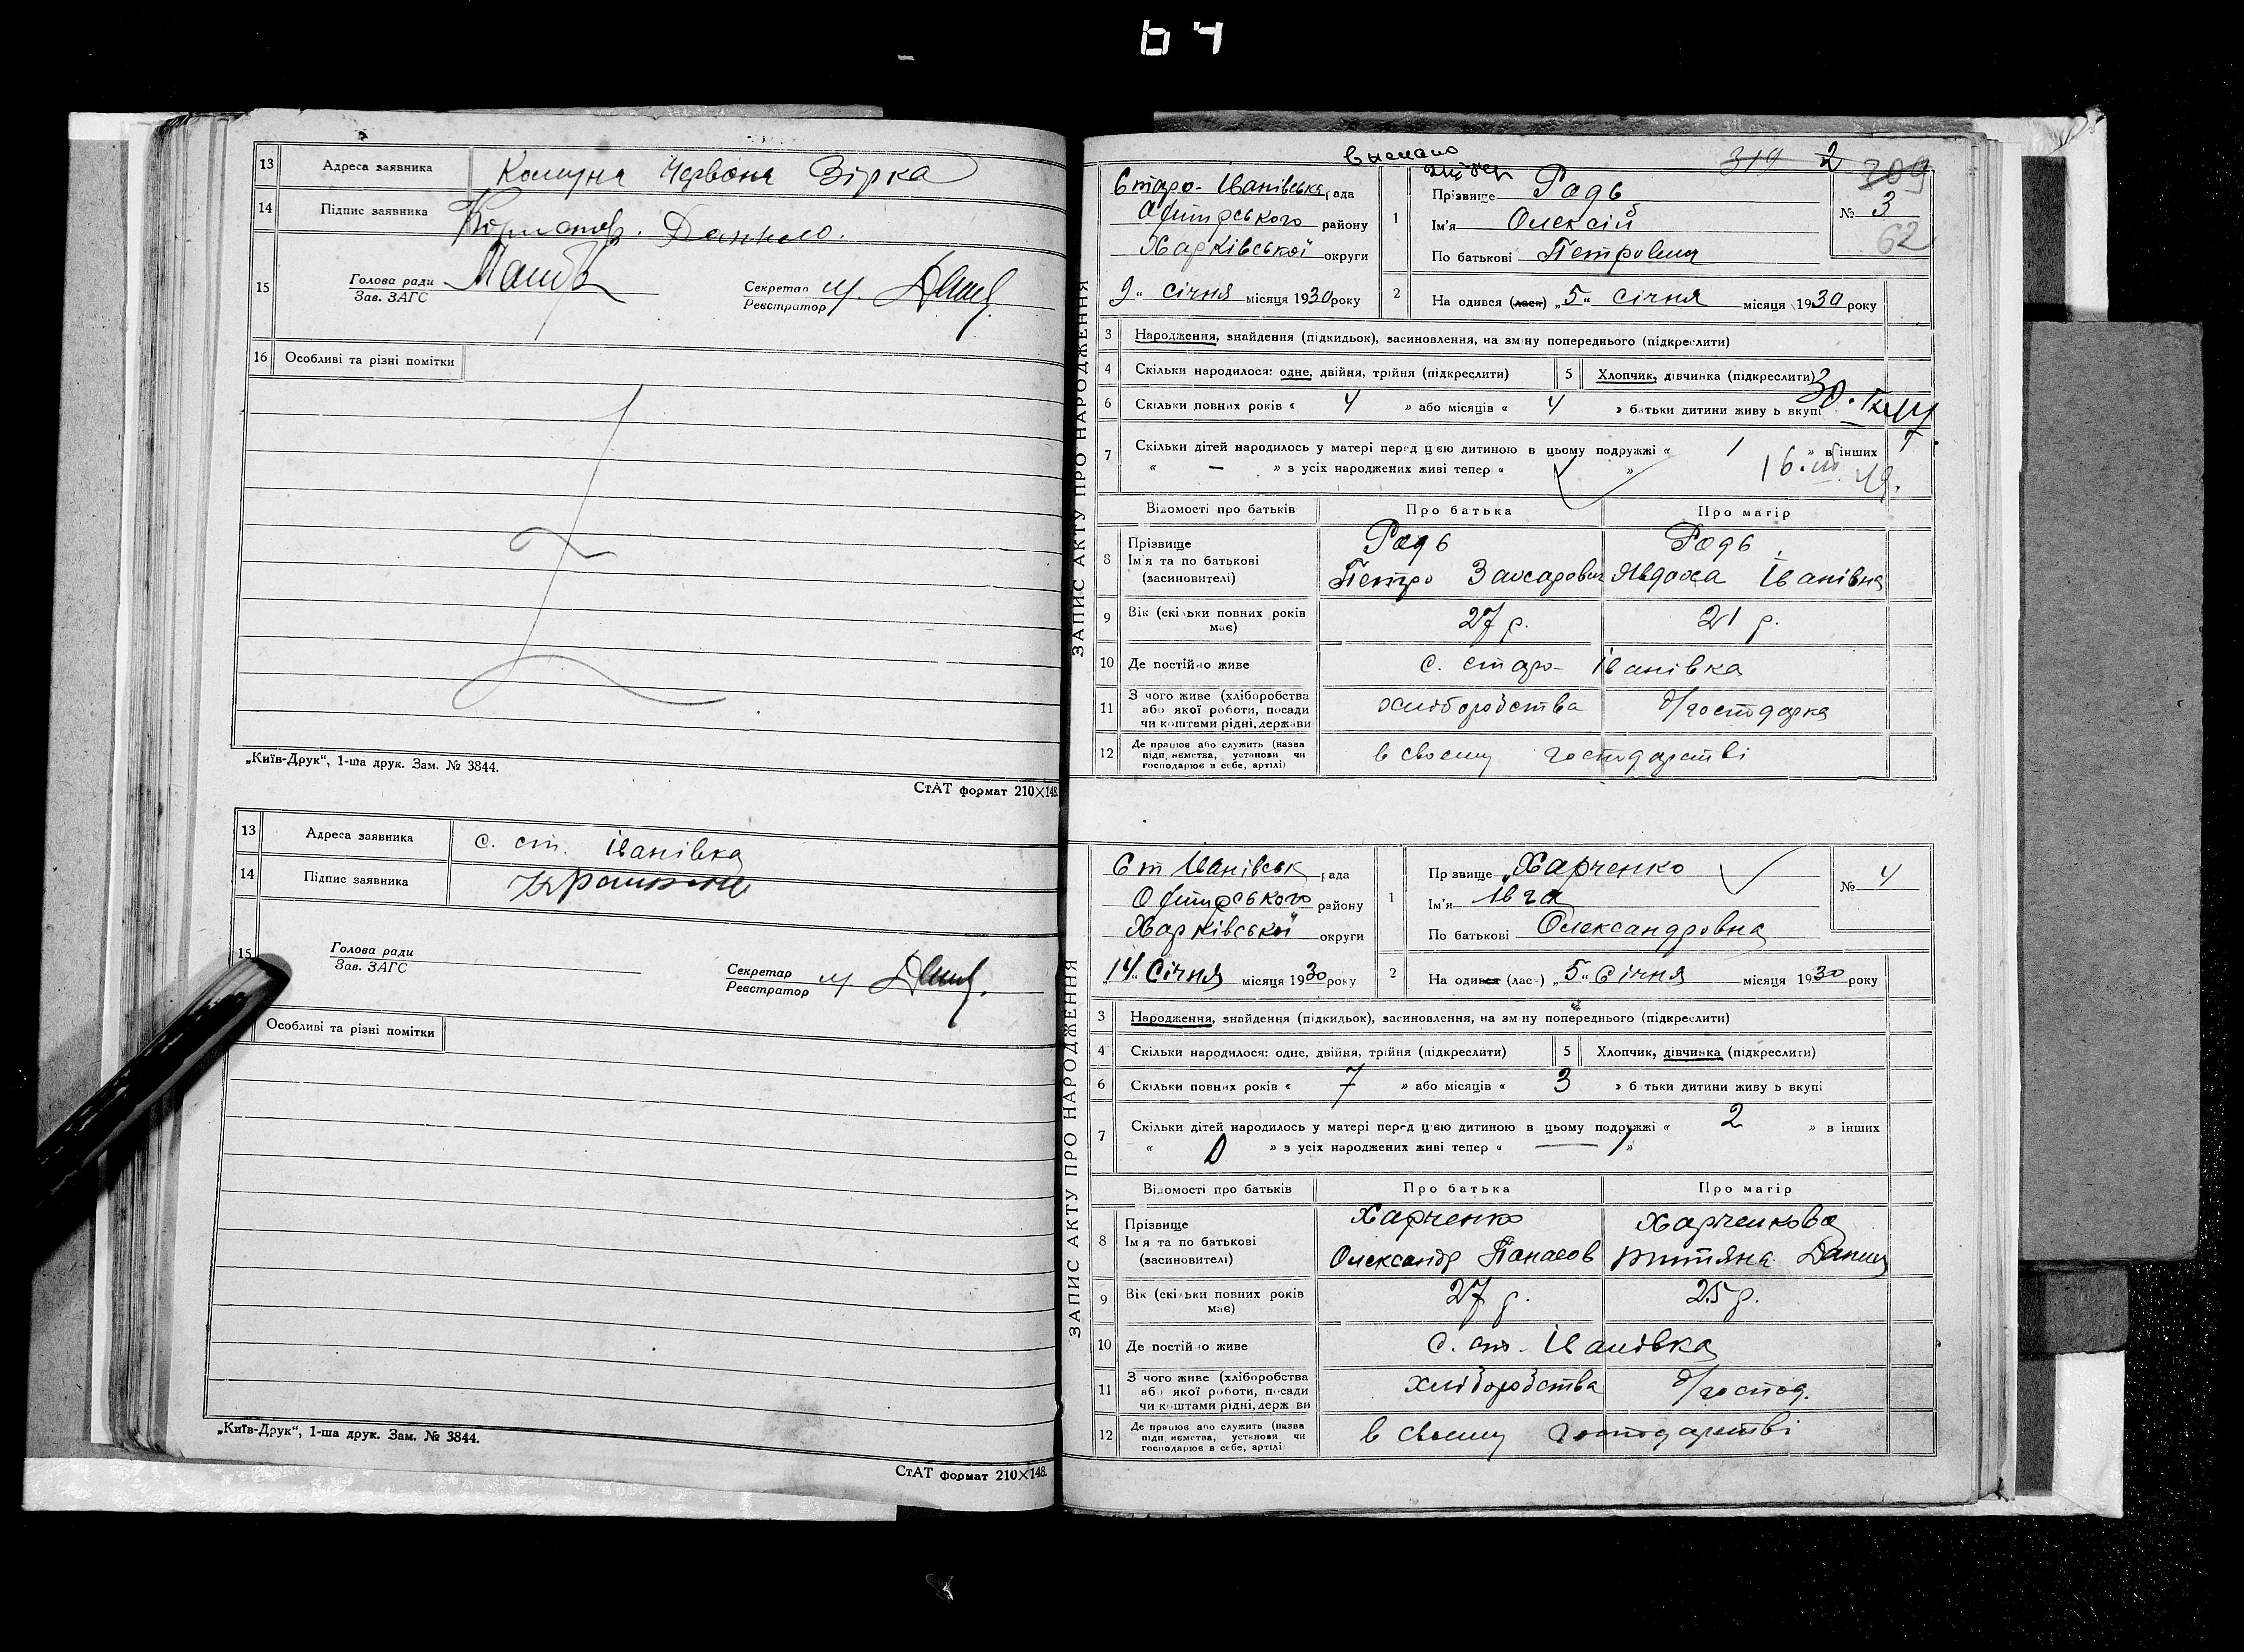 64
13 Адреса заявника Комуна Червона Зірка
14 Підпис заявника Данило.
15 Голова ради
Зав. ЗАГС
Секретар
Реєстратор
16 Особливі та різні помітки
„Київ-Друк“, 1-ша друк. Зам. № 3844.
СтАТ формат 210×148.
13 Адреса заявника с. ст. Іванівка
14 Підпис заявника
15 Голова ради
Зав. ЗАГС
Секретар
Реєстратор
Особливі та різні помітки
„Київ-Друк“, 1-ша друк. Зам. № 3844.
СтАТ формат 210×148.
ЗАПИС АКТУ ПРО НАРОДЖЕННЯ
319 2 209
Старо-Іванівська рада
району
Харківської округи
9 січня місяця 1930 року
1 Прізвище Родь
Ім'я Олексій
По батькові Петрович
№ 3
62
2 На одився (лась) „5“ січня місяця 1930 року
3 Народження, знайдення (підкидьок), засиновлення, на зміну попереднього (підкреслити)
4 Скільки народилося: одне, двійня, трійня (підкреслити)
5 Хлопчик, дівчинка (підкреслити)
6 Скільки повних років « 4 » або місяців « 4 » батьки дитини живуть вкупі
7 Скільки дітей народилось у матері перед цією дитиною в цьому подружжі « 1 » в інших
« — » з усіх народжених живі тепер « »
Відомості про батьків Про батька Про матір
8 Прізвище Родь Родь
Ім'я та по батькові Петро Захарович Явдоха Іванівна
(засиновителі)
9 Вік (скільки повних років має) 27 р. 21 р.
10 Де постійно живе с. старо-Іванівка
11 З чого живе (хліборобства або якої роботи, посади чи коштами рідні, держави хліборобства д/господарка
12 Де працює або служить (назва підприємства, установи чи господарює в себе, артілі) в своєму господарстві
ЗАПИС АКТУ ПРО НАРОДЖЕННЯ
Ст Іванівськ рада
району
Харківської округи
„14“ Січня місяця 1930 року
1 Прізвище Харченко
Ім'я Івга
По батькові Олександровна
№ 4
2 На одився (лась) „5“ Січня місяця 1930 року
3 Народження, знайдення (підкидьок), засиновлення, на зміну попереднього (підкреслити)
4 Скільки народилося: одне, двійня, трійня (підкреслити)
5 Хлопчик, дівчинка (підкреслити)
6 Скільки повних років « 7 » або місяців « 3 » батьки дитини живуть вкупі
7 Скільки дітей народилось у матері перед цією дитиною в цьому подружжі « 2 » в інших
« » з усіх народжених живі тепер « »
Відомості про батьків Про батька Про матір
8 Прізвище Харченко Харченкова
Ім'я та по батькові Олександр Панасов
(засиновителі)
9 Вік (скільки повних років має) 27 р. 25 р.
10 Де постійно живе с. ст. Іванівка
11 З чого живе (хліборобства або якої роботи, посади чи коштами рідні, держави хліборобства д/господ.
12 Де працює або служить (назва підприємства, установи чи господарює в себе, артілі) в своєму господарстві